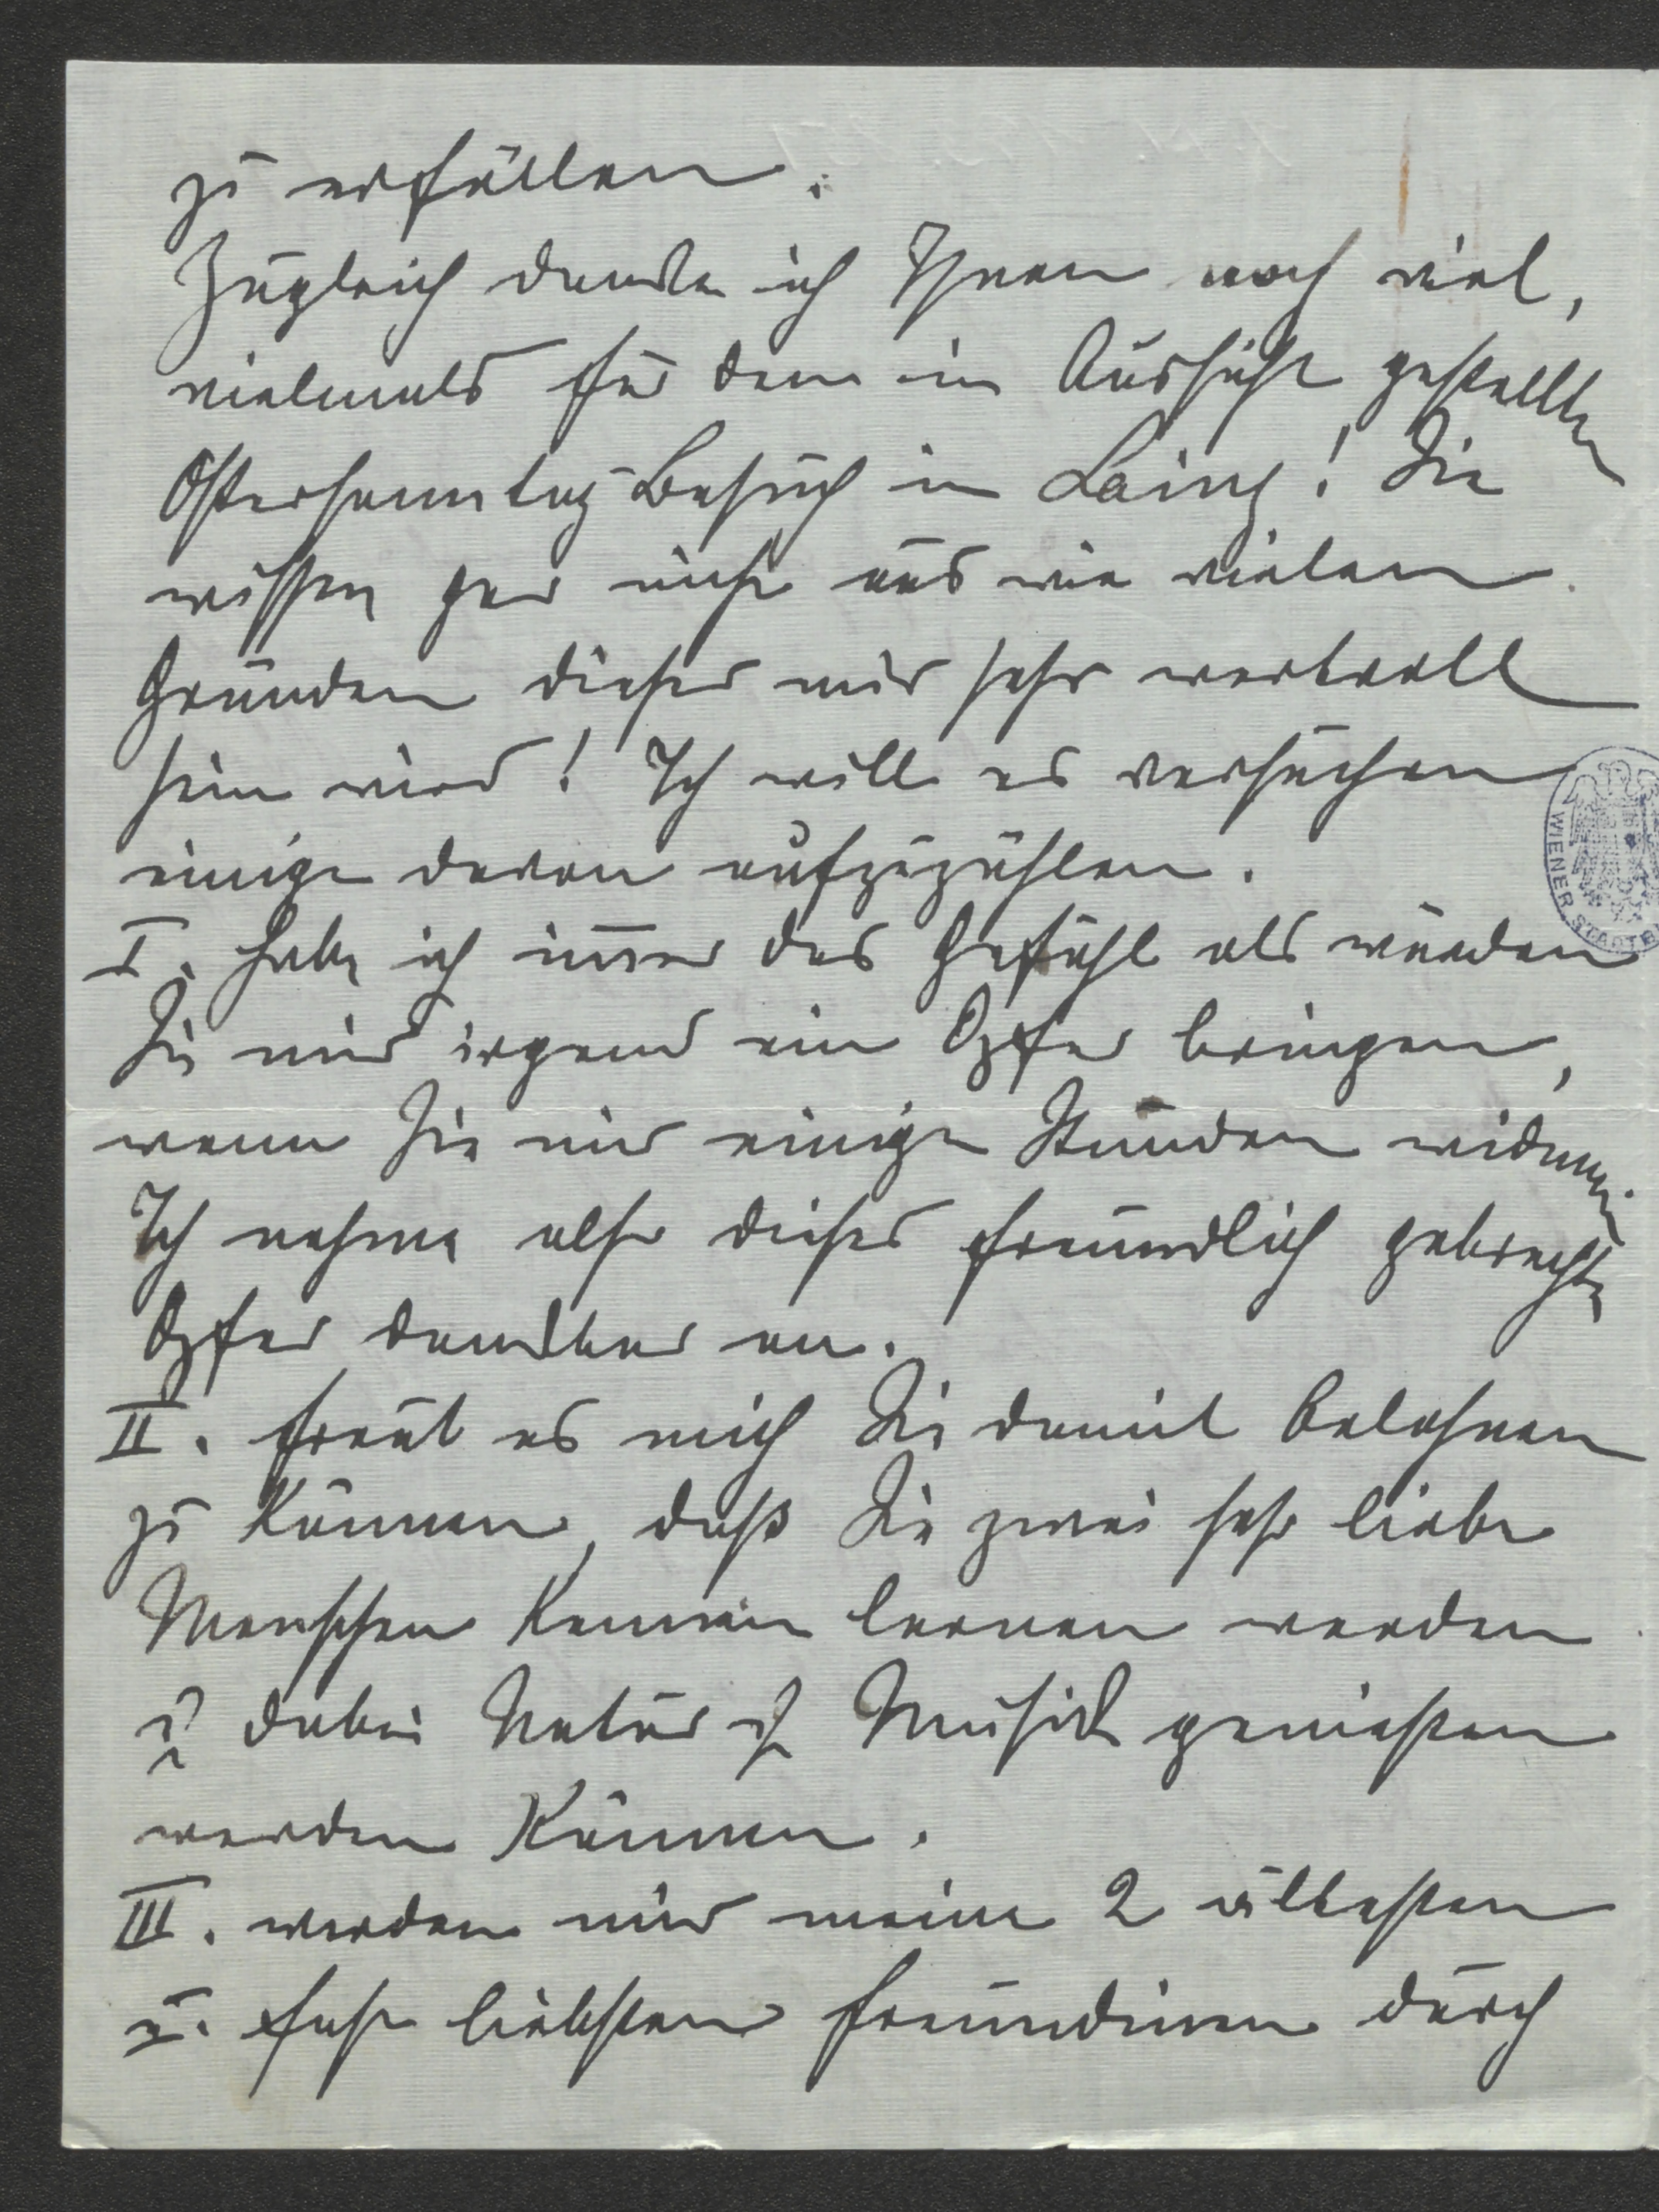 zu erfüllen.
Zugleich danke ich Ihnen noch viel,
vielmals für den in Aussicht gestellten
Ostersonntag Besuch in Lainz! Sie
wissen gar nicht aus wie vielen
Gründen dieser mir sehr wertvoll
sein wird! Ich will es versuchen
einige davon aufzuzählen.
I. habe ich immer das Gefühl als würden
Sie mir irgend ein Opfer bringen,
wenn Sie mir einige Stunden widmen.
Ich nehme also dieses freundlich gebrachte
Opfer dankbar an.
II. freut es mich Sie damit belohnen
zu können, daß Sie zwei sehr liebe
Menschen kennen lernen werden
& dabei Natur & Musik genießen
werden können.
III. werden mir meine 2 ältesten
u. fast liebsten Freundinnen durch
WIENER STADTB